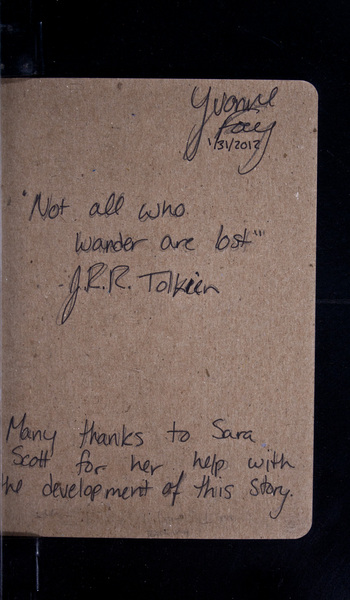 Yvonne
Fay
1/31/2012
"Not all who
wander are lost"
-J.R.R. Tolkien
Many thanks to Sara
Scott for her help with
the development of this story.